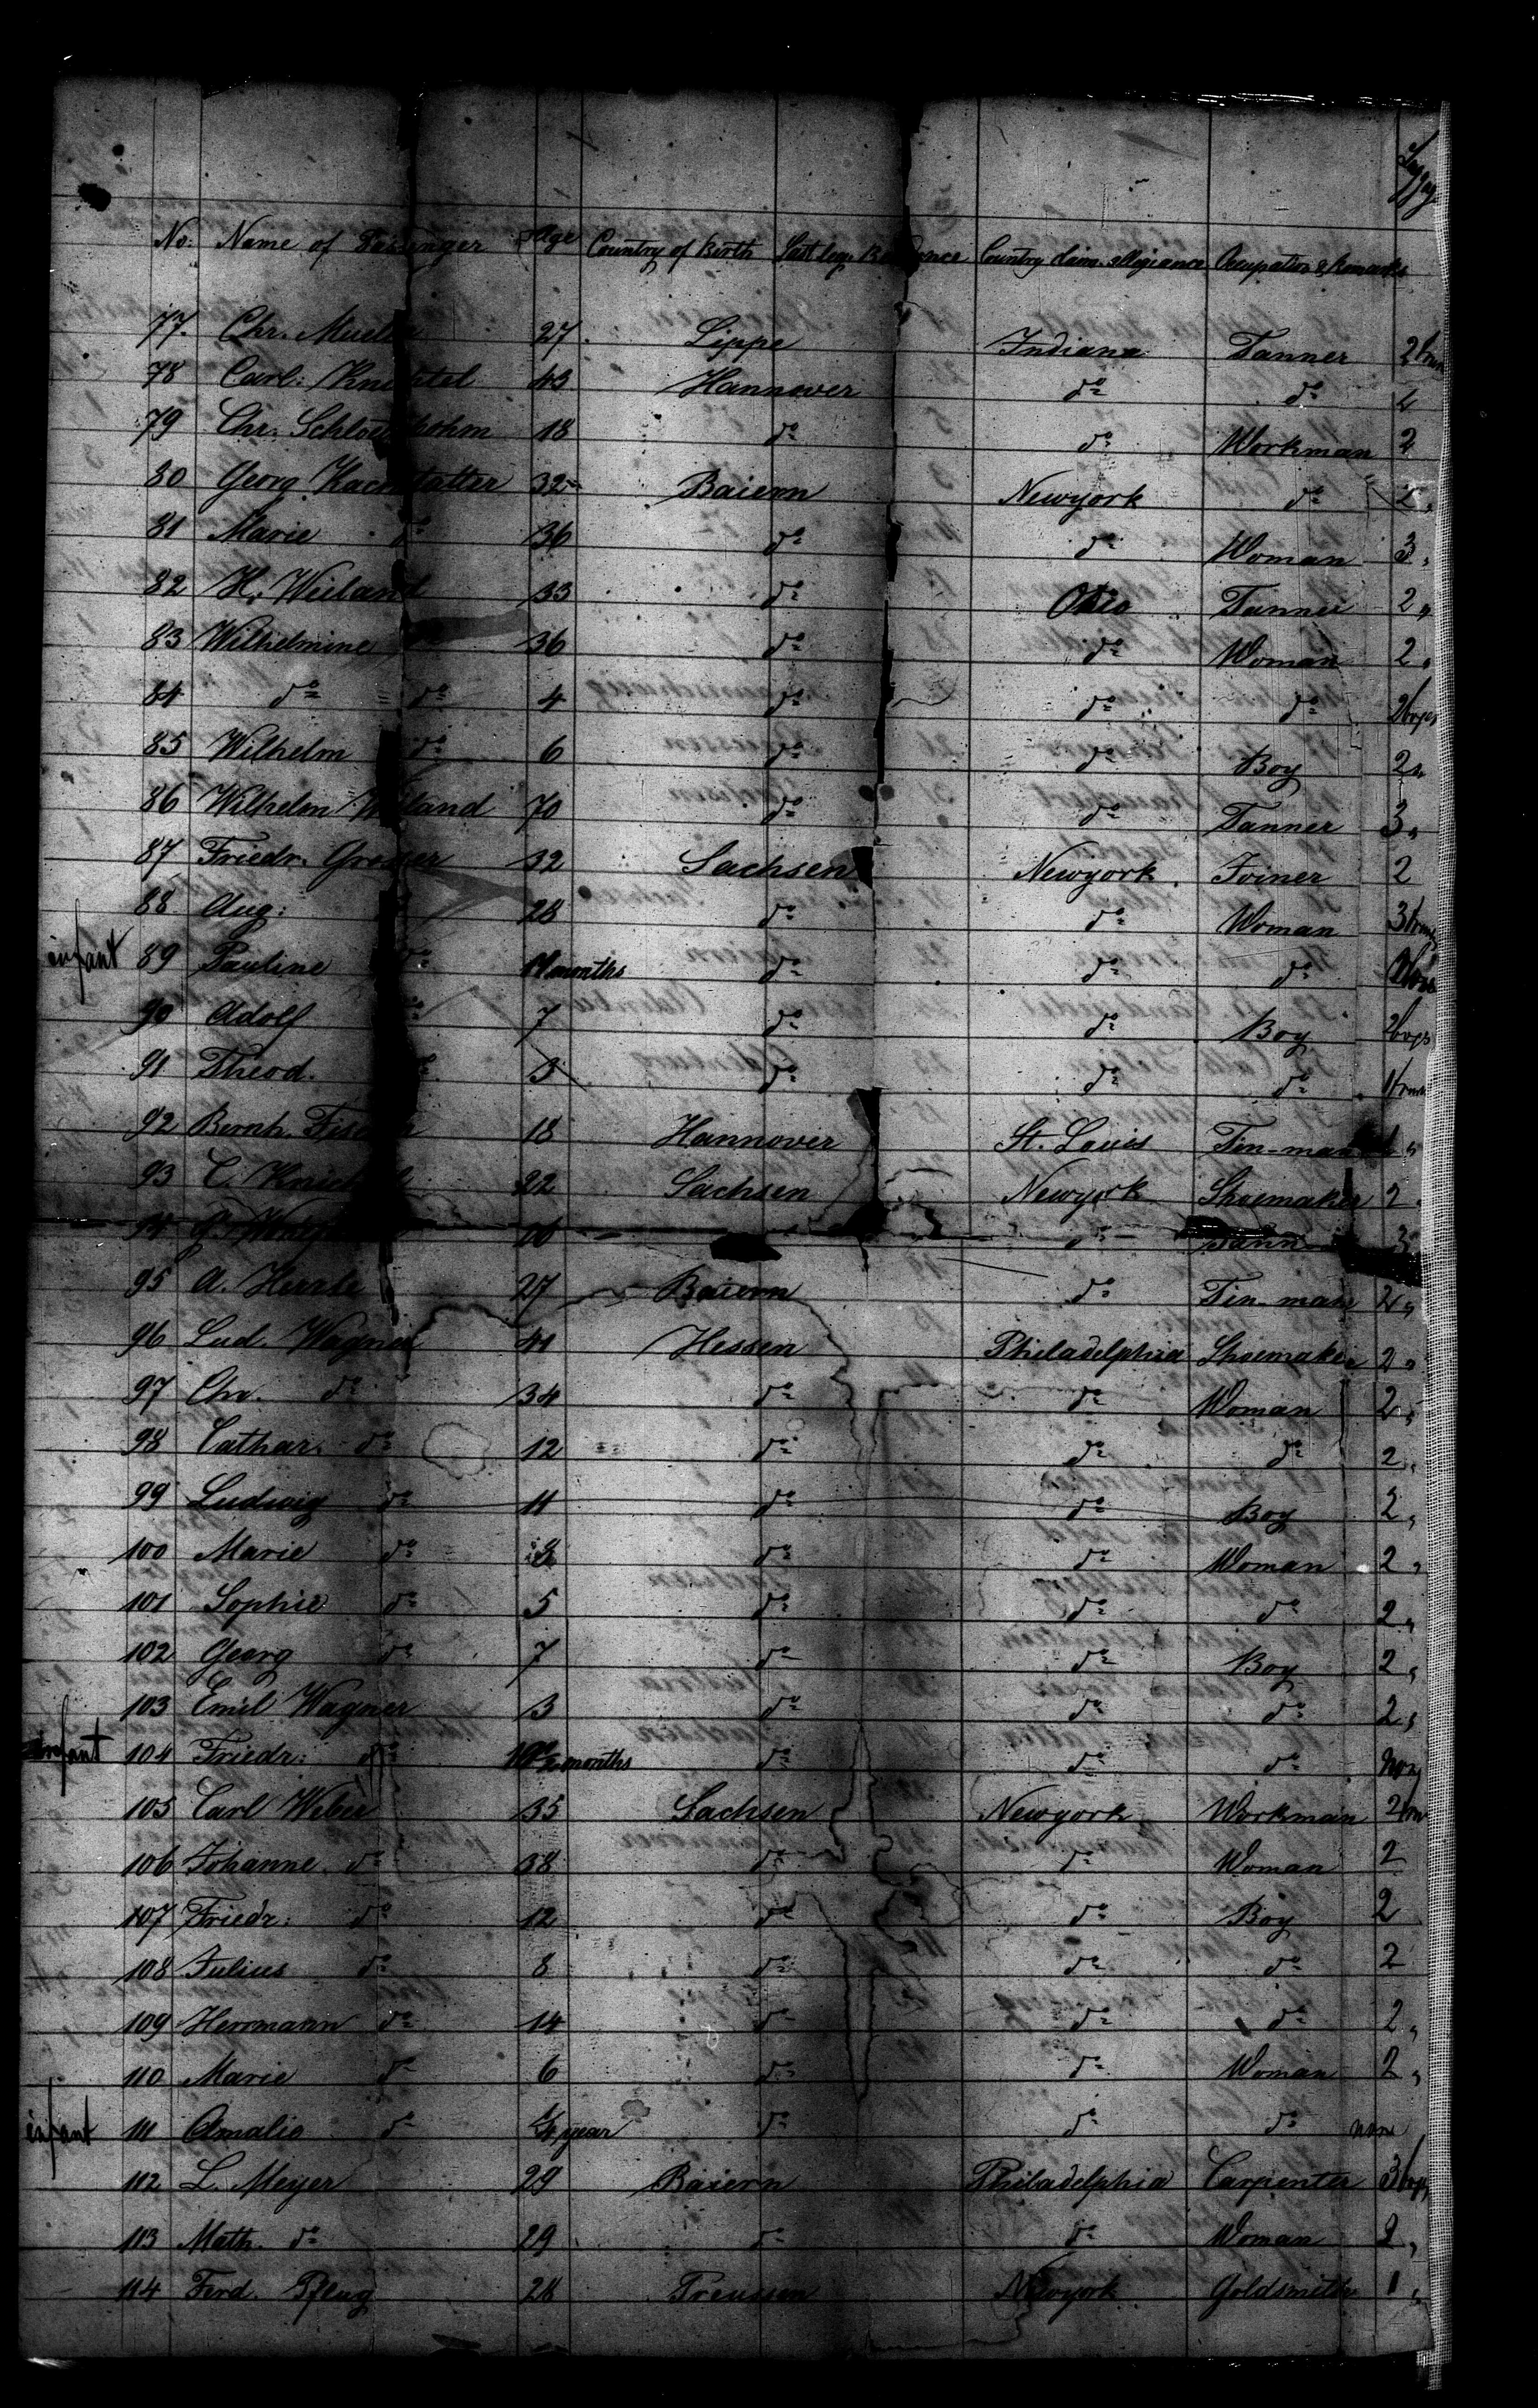 Luggage
No. Name of Passenger Age Country of Birth Last leg. Residence Country claim. allegiance Occupation & Remarks
77. Chr. Mueller 27. Lippe Indiana Tanner
78 Carl: Knechtel 43 Hannover do do 2
79 Chr. 18 do do Workman 2
80 Georg 32 Baiern Newyork do 2,
81 Marie do 36 do do Woman 3,
82 H. Wieland 33 do Ohio Tanner 2,
83 Wilhelmine do 36 do do Woman 2,
84 do do 4 do do do 2 boxes
85 Wilhelm do 6 do do Boy 2,
86 Wilhelm Wieland 70 do do Tanner 3,
87 Friedr. 32 Sachsen Newyork. Joiner 2
88 Aug: 28 do do Woman
enfant 89 Pauline do months do do do
90 Adolf do 7 do do Boy
91 Theod. 3 do do do
92 Bernh. 18 Hannover St. Louis Tin-man
93 C. 22 Sachsen Newyork Shoemaker 2
94 do 3
95 A. 27 Baiern do Tin-man 2,
96 Lud. Wagner 41 Hessen Philadelphia Shoemaker 2,
97 Chr. do 34 do do Woman 2,
98 Cathar. do 12 do do do 2,
99 Ludwig do 11 do do Boy 2,
100 Marie do do do Woman 2,
101 Sophie do 5 do do do 2,
102 Georg do 7 do do Boy 2,
103 Emil Wagner 3 do do do 2,
enfant 104 Friedr: do months do do do
105 Carl Weber 35 Sachsen Newyork Workman
106 Johanne. do 38 do do Woman 2
107 Friedr: do 12 do do Boy 2
108 Julius do 8 do do do 2
109 Herrmann do 14 do do do 2,
110 Marie do 6 do do Woman 2,
enfant 111 Amalie do year do do do none
112 L. Meyer 29 Baiern Philadelphia Carpenter
113 Math. do 29 do do Woman 2,
114 Ferd. Pflug 28 Preussen Newyork Goldsmith 1,